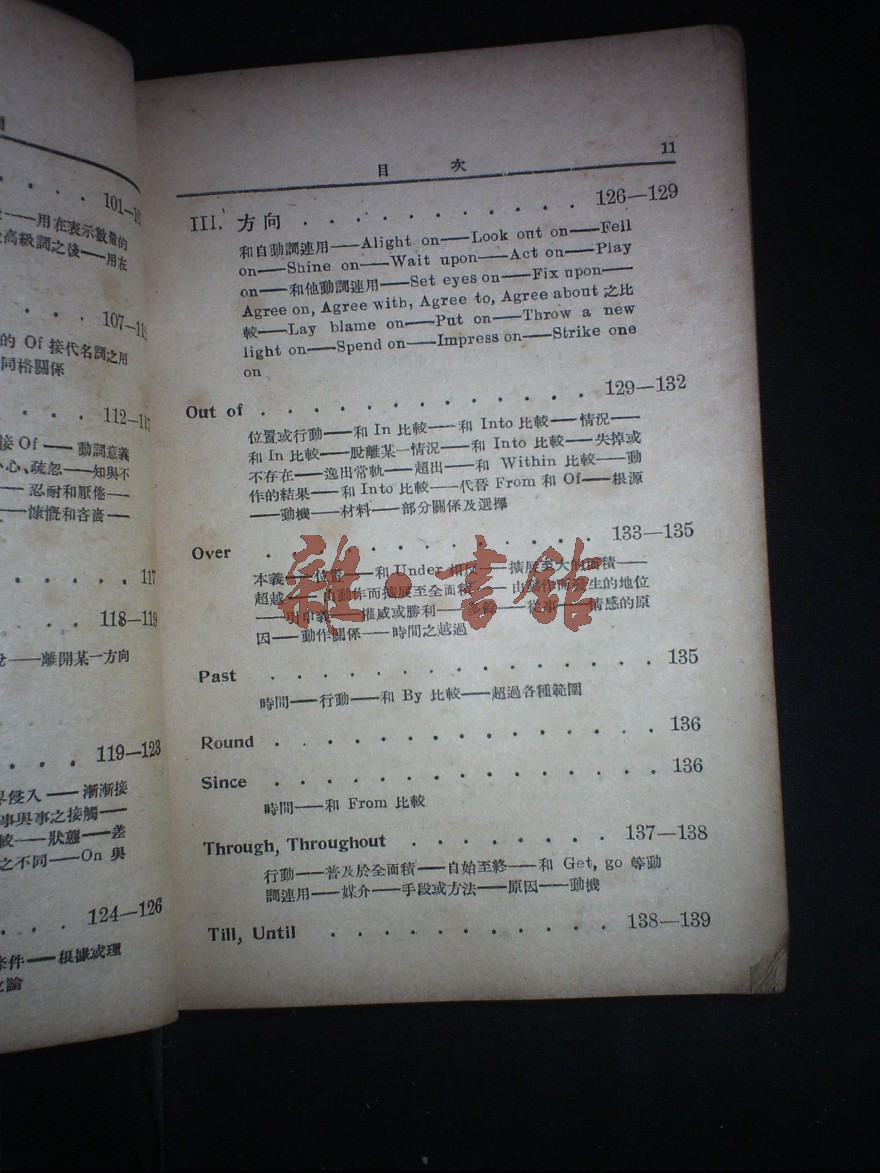 101—1
——用在表示數量的
高級詞之後——用在
107—11
的 Of 接代名詞之用
同格關係
112—117
接 Of —— 動詞意義
小心、疏忽——知與不
—— 忍耐和厭倦——
——慷慨和吝嗇——
117
118—119
——離開某一方向
119—123
界侵入——漸漸接
事與事之接觸——
較——狀態——差
之不同——On 與
124—126
條件——根據或理
之論
目 次 11
III. 方向 . . . . . . . . . . . 126—129
和自動詞連用——Alight on——Look out on——Fell
on——Shine on——Wait upon——Act on——Play
on——和他動詞連用——Set eyes on——Fix upon——
Agree on, Agree with, Agree to, Agree about 之比
較——Lay blame on——Put on——Throw a new
light on——Spend on——Impress on——Strike one
on
Out of . . . . . . . . . . . . . 129—132
位置或行動——和 In 比較——和 Into 比較——情況——
和 In 比較——脫離某一情況——和 Into 比較——失掉或
不存在——逸出常軌——超出——和 Within 比較——動
作的結果——和 Into 比較——代替 From 和 Of——根源
——動機——材料——部分關係及選擇
Over . . . . . . . . . . . . . 133—135
本義——位置——和 Under 相反——擴展至大的面積——
超越——由動作而擴展至全面積——由動作而發生的地位
——引申義——權威或勝利——多餘——從事——情感的原
因——動作關係——時間之越過
Past . . . . . . . . . . . . . . . 135
時間——行動——和 By 比較——超過各種範圍
Round . . . . . . . . . . . . . . 136
Since . . . . . . . . . . . . . . 136
時間——和 From 比較
Through, Throughout . . . . . . . . 137—138
行動——普及於全面積——自始至終——和 Get, go 等動
詞連用——媒介——手段或方法——原因——動機
Till, Until . . . . . . . . . . . 138—139
雜·書館